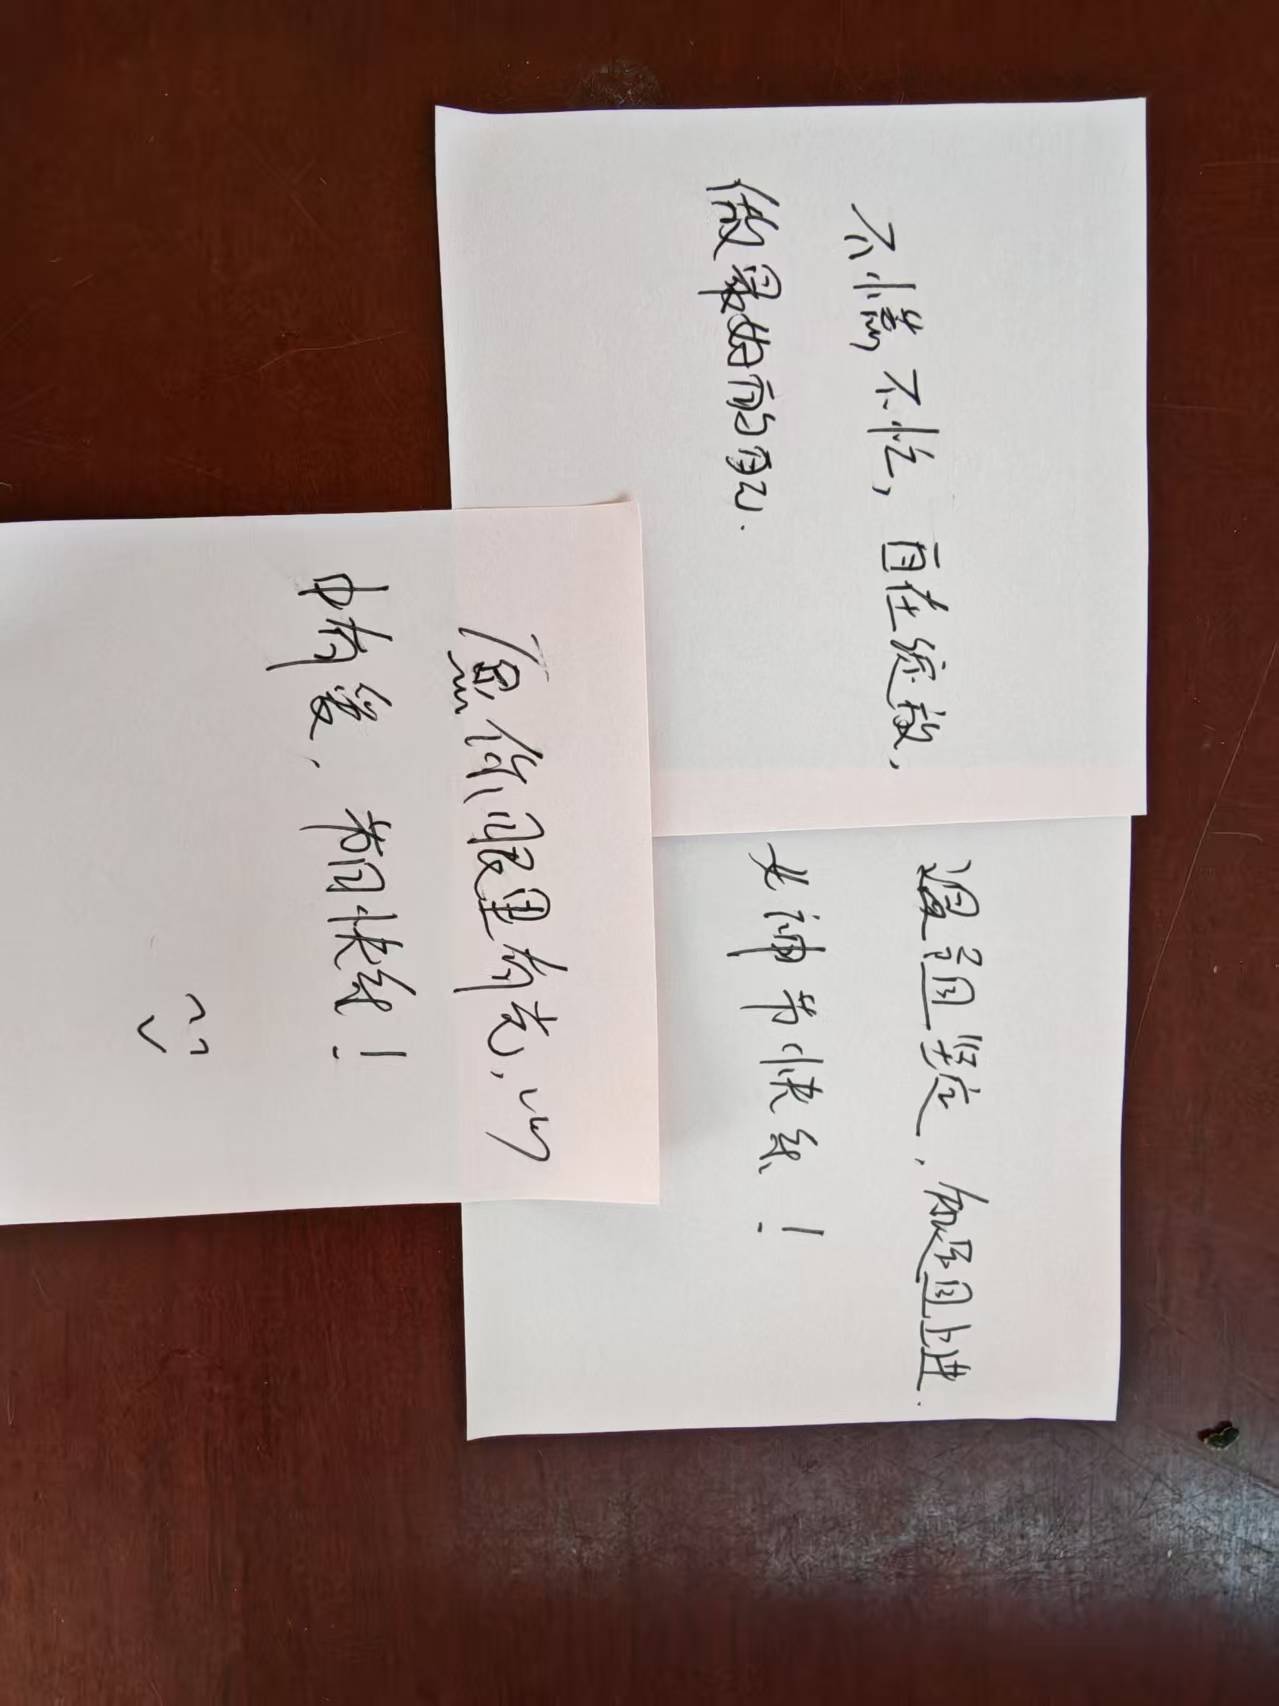 不慌不忙,自在绽放,
做最好的自己.
温柔且坚定,知足且上进.
女神节快乐!
愿你眼里有光,心
中有爱,节日快乐!